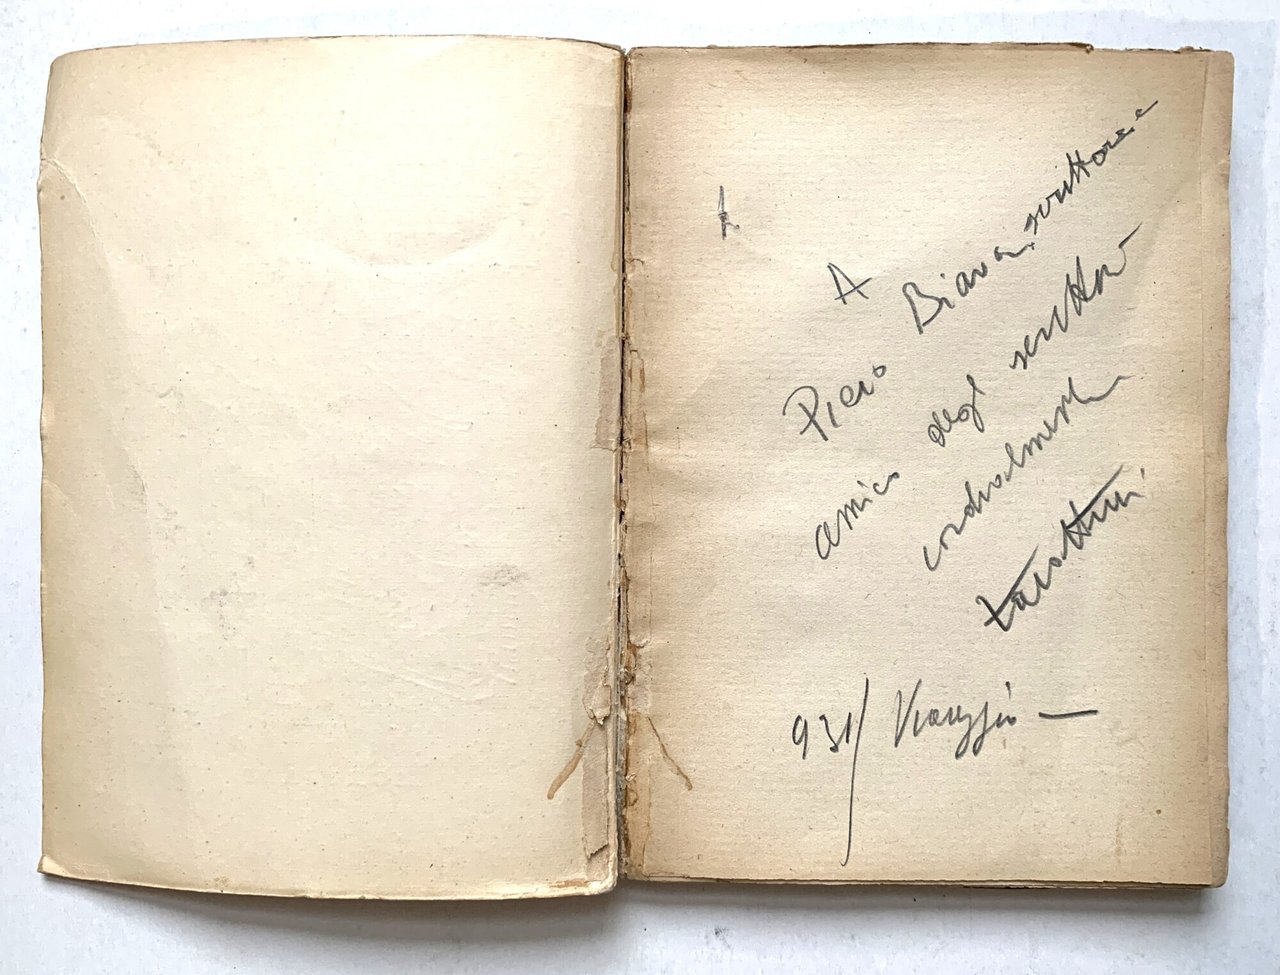 A
Piero Biava, scrittore e
amico degli scrittori
cordialmente
931/ Viareggio —